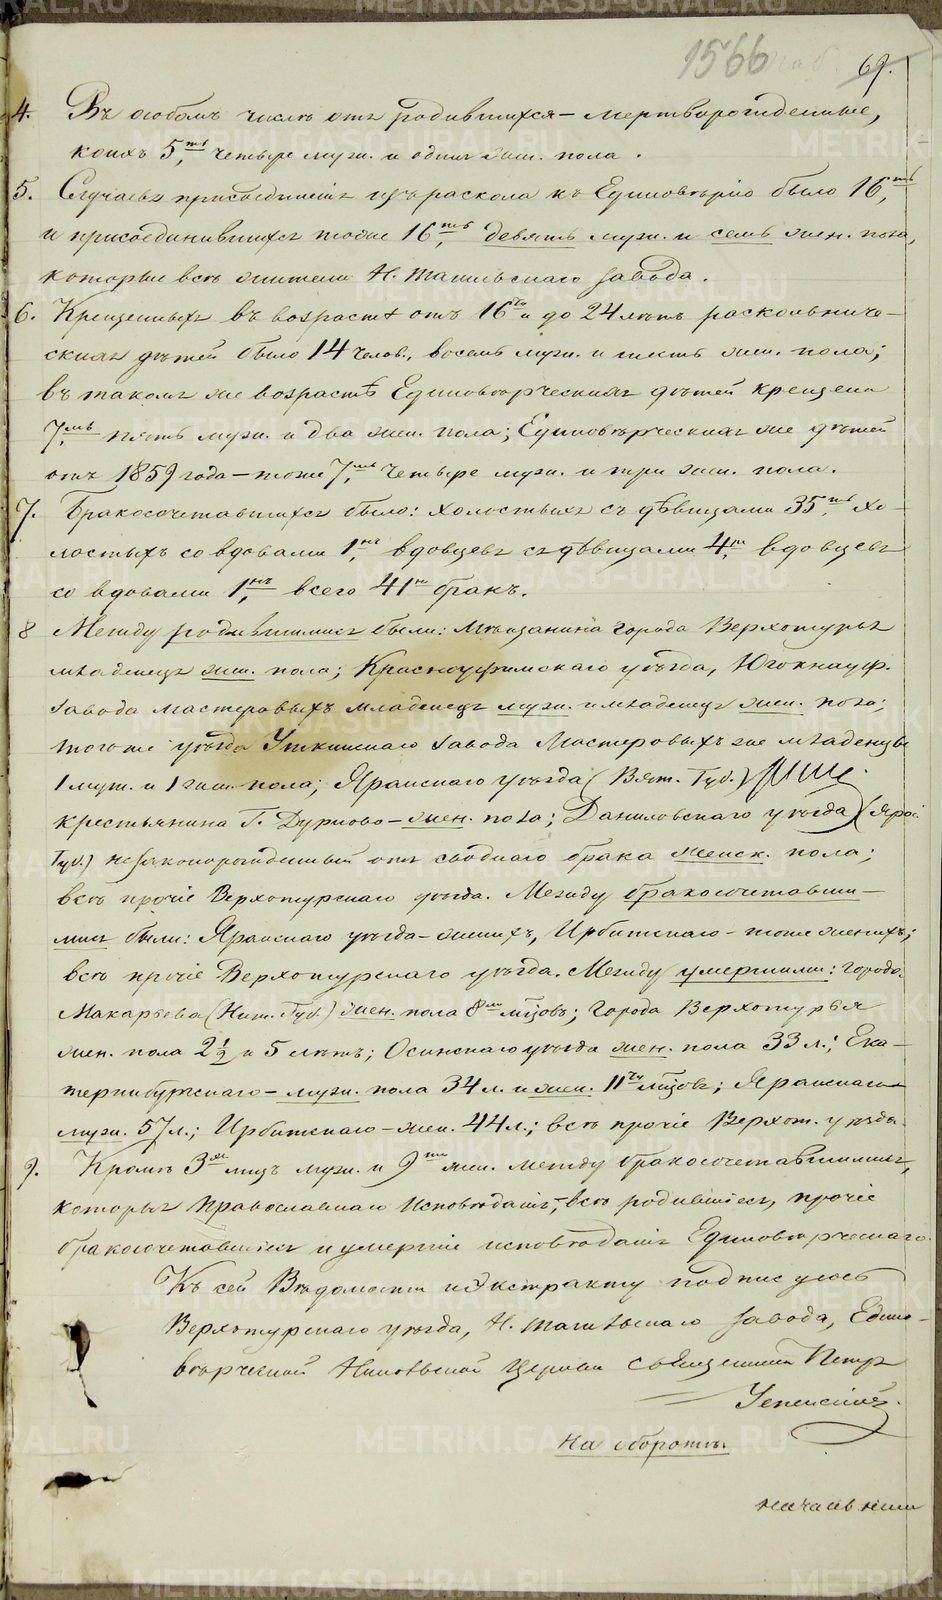 1566
69.
4. Въ особомъ числѣ отъ родившихся – мертворожденные,
коихъ 5,ть четыре муж. и одинъ жен. пола.
5. Случаевъ присоединенія изъ раскола къ Единовѣрію было 16,ть
и присоединившихся тоже 16,ть девять муж. и семь жен. пола,
которые всѣ жители Н. Тагильскаго завода.
6. Крещенныхъ въ возрастѣ отъ 16 и до 24 лѣтъ раскольниче-
скихъ дѣтей было 14 челов., восемь муж. и шесть жен. пола;
въ такомъ же возрастѣ Единовѣрческихъ дѣтей крещено
7,мь пять муж. и два жен. пола; Единовѣрческихъ же дѣтей
отъ 1859 года – тоже 7,мь четыре муж. и три жен. пола.
7. Бракосочетавшихся было: холостыхъ съ дѣвицами 35,ть хо-
лостыхъ со вдовами 1,нъ вдовцевъ съ дѣвицами 4, вдовцевъ
со вдовами 1,нъ всего 41нъ бракъ.
8 Между родившимися были: Мѣщанина города Верхотурья
младенецъ жен. пола; Красноуфимскаго уѣзда, Югокнауф.
завода мастеровыхъ младенецъ муж. и младенецъ жен. пола;
того же уѣзда Уткинскаго завода Мастеровыхъ же младенцы
1 муж. и 1 жен. пола; Яранскаго уѣзда (Вят. Губ.)
крестьянина Г. Дурново – жен. пола; Даниловскаго уѣзда (Яро.
Губ.) незаконорожденный отъ своднаго брака женск. пола;
всѣ прочіе Верхотурскаго уѣзда. Между бракосочетавши-
мися были: Яранскаго уѣзда – женихъ, Ирбитскаго – тоже женихъ;
всѣ прочіе Верхотурскаго уѣзда. Между умершими: города
Макарьева (Ниж. Губ.) жен. пола 8ми мѣсцовъ; города Верхотурья
жен. пола 2 1/2 и 5 лѣтъ; Осинскаго уѣзда жен. пола 33 л.; Ека-
теринбургскаго – муж. пола 34 л. и жен. 11ти мѣсцовъ; Яранскаго –
муж. 57 л.; Ирбитскаго – жен. 44 л.; всѣ прочіе Верхот. уѣзда.
9. Кромѣ 3хъ лицъ муж. и 9ти жен. между бракосочетавшимися,
которые Православнаго исповѣданія, – всѣ родившіеся, прочіе
бракосочетавшіеся и умершіе исповѣданія Единовѣрческаго.
Къ сей Вѣдомости и Экстракту подписуюсь
Верхотурскаго уѣзда, Н. Тагильскаго завода, Едино-
вѣрческой Никольской церкви Священникъ Петръ
Успенскій.
На оборотѣ.